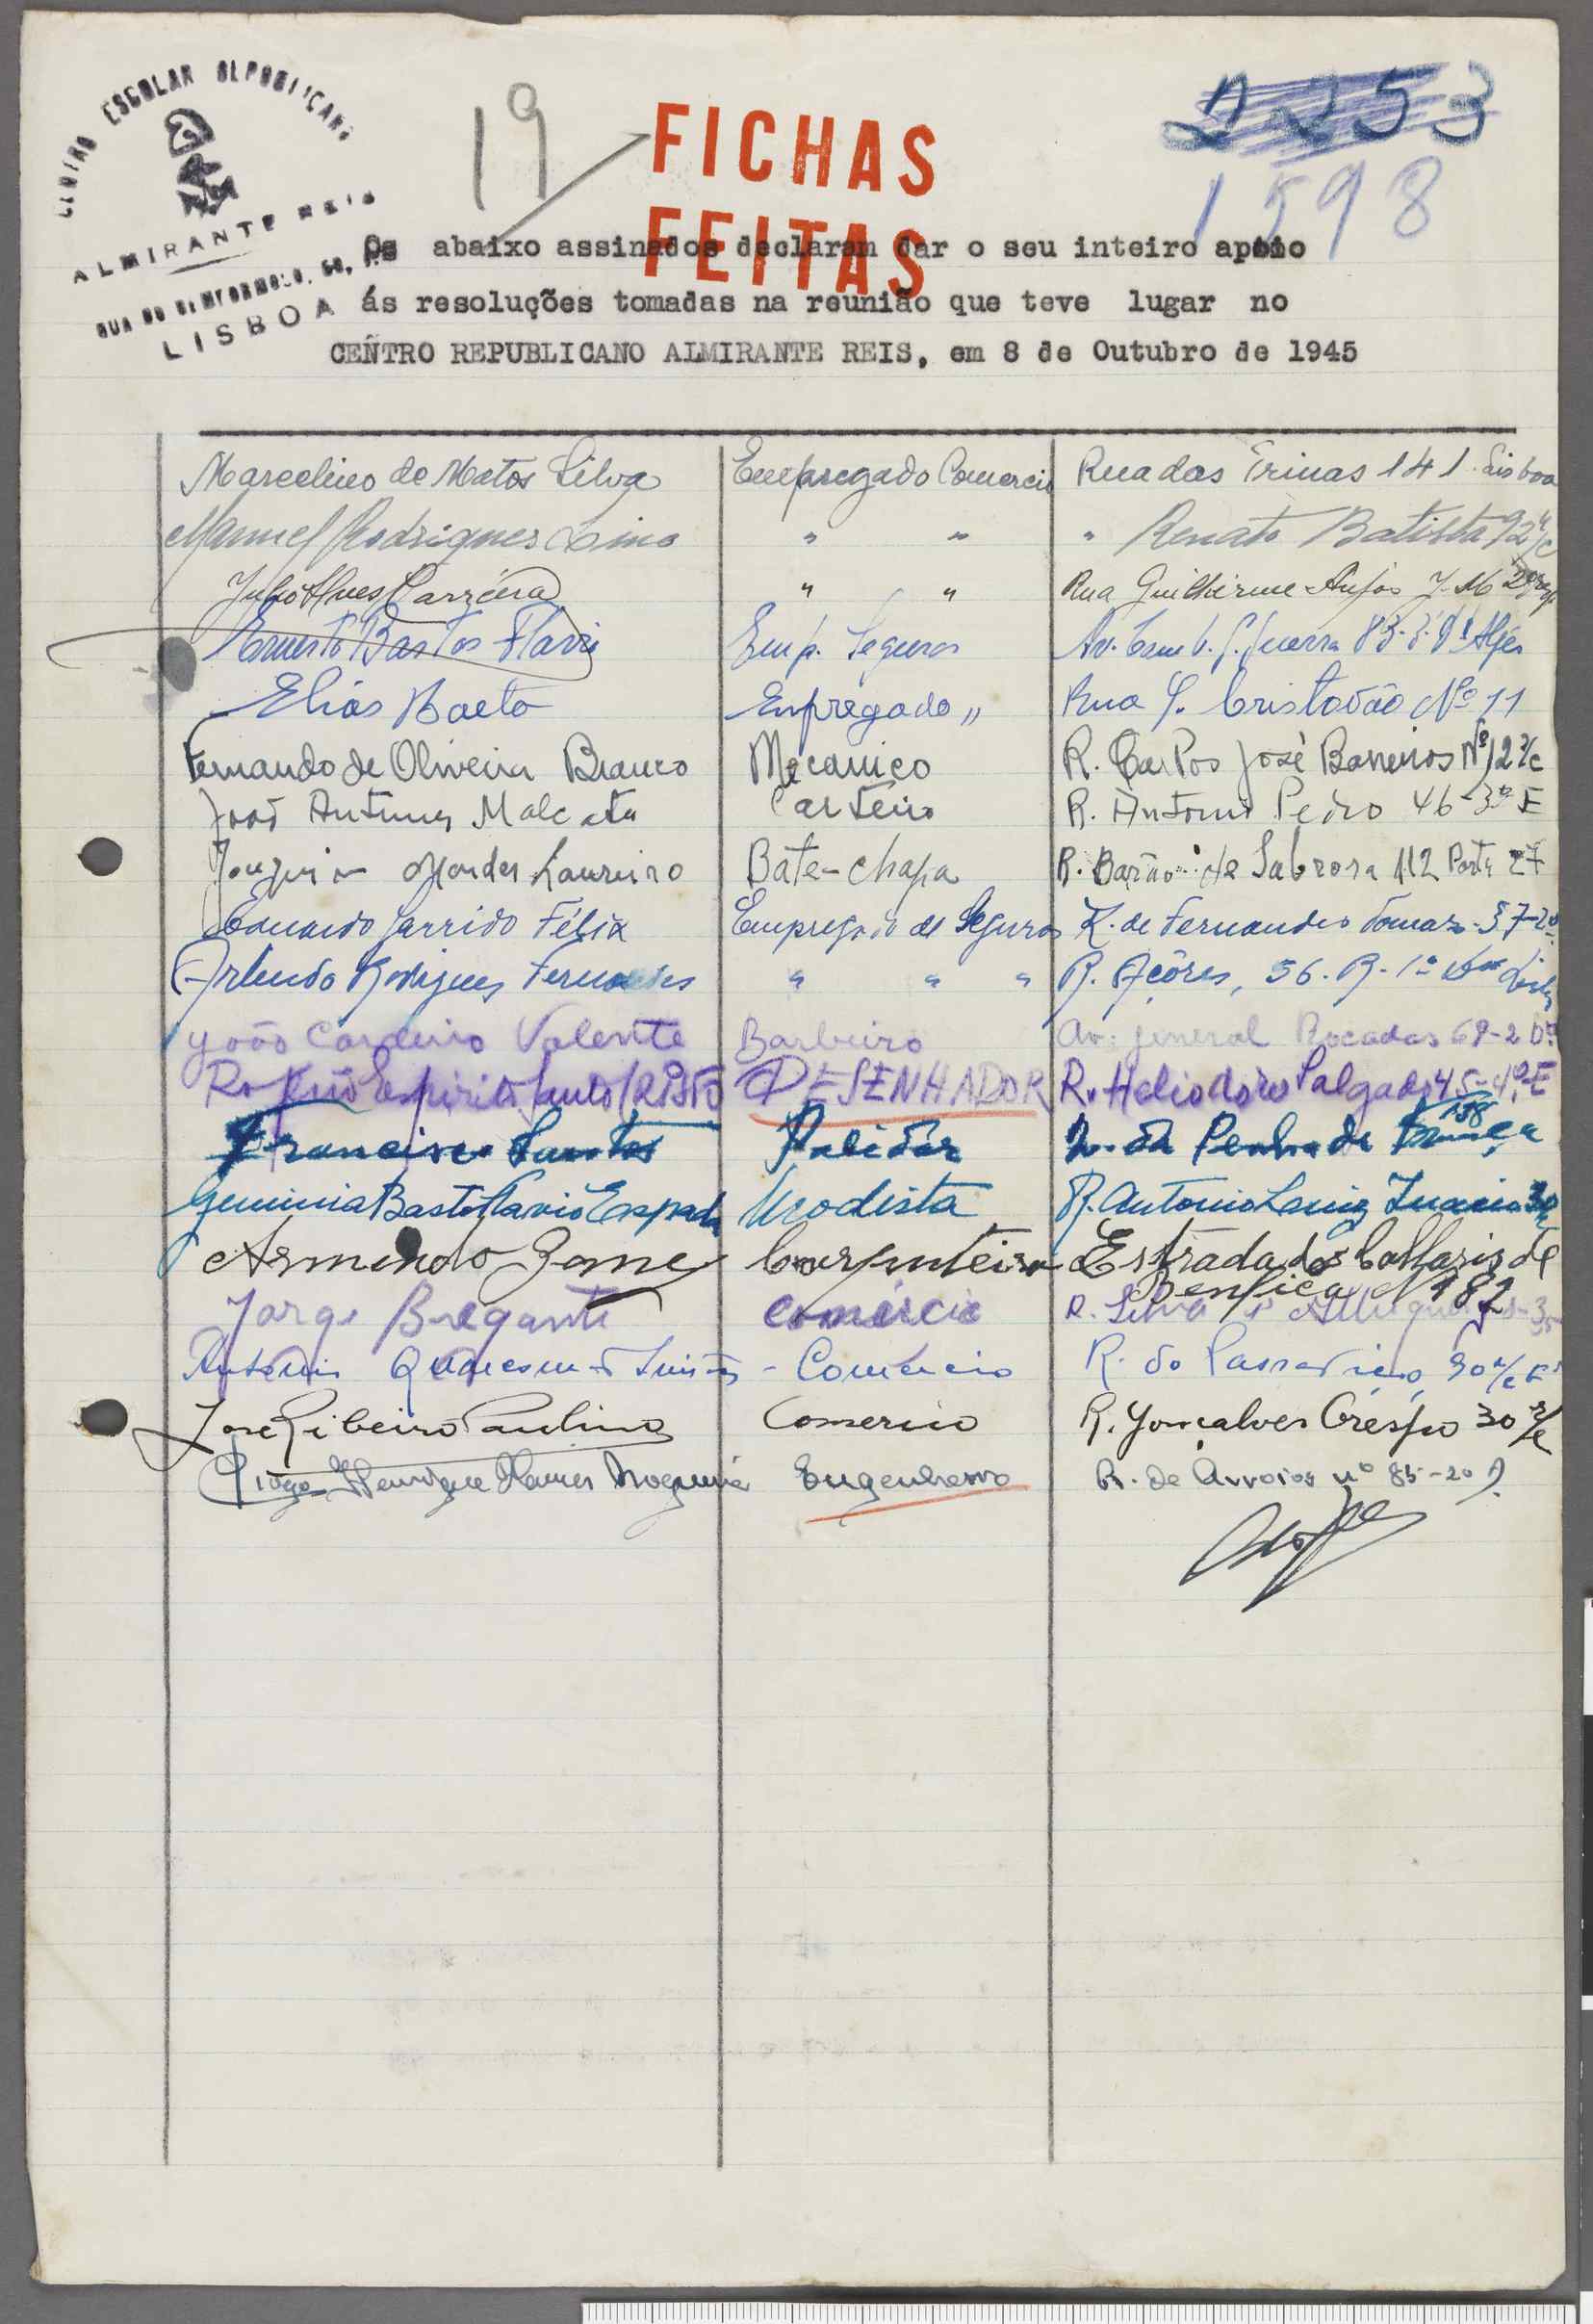 CENTRO ESCOLAR REPUBLICANO
ALMIRANTE REIS
RUA DO BEMFORMOSO, 50,
LISBOA
19
FICHAS
FEITAS
2253
1598
Os abaixo assinados declaram dar o seu inteiro apoio
ás resoluções tomadas na reunião que teve lugar no
CENTRO REPUBLICANO ALMIRANTE REIS, em 8 de Outubro de 1945
Marcelino de Matos Silva Empregado Comercio Rua das Trinas 141 Lisboa
Manuel Rodrigues Lima " " " Renato Batista 92 r/c
Julio Alves Carreira " " Rua Guilherme Anjos
Ernesto Bastos Flavio Emp. Seguros Av. Comb. G. Guerra 83 Algés
Elias Baeta Empregado " Rua S. Cristovão Nº 11
Fernando de Oliveira Branco Mecanico R. Carlos José Barreiros Nº 12 r/c
João Antunes Malcata Carteiro R. Antonio Pedro 46-3º E
Joaquim Mendes Loureiro Bate-chapa R. Barão de Sabrosa 112 Porta 27
Eduardo Garrido Félix Empregado de Seguros R. de Fernandes Tomaz 37-2º
Arlindo Rodrigues Fernandes " " " R. Açôres, 56. R-1º Lisboa
João Cardeiro Valente Barbeiro Av. General Rocadas 69-2 Dº
Espirito Santo Cristo DESENHADOR R. Heliodoro Salgado 45-4º-E
Francisco Santos Polidor R. da Penha de França 138
Geminia Bastos Flavio Espada Modista R. Antonio Luiz Inacio 30
Armindo Gomes Carpinteiro Estrada do Calhariz de
Benfica Nº 182
Jorge Bregante Comércio R. Silva e Albuquerque
Antonio Quaresma Comercio R. do Passadiço 30 r/c E
José Ribeiro Paulino Comercio R. Gonçalves Crespo 30 r/c
Diogo Henrique Nogueira Engenheiro R. de Arroios nº 85-2º D.